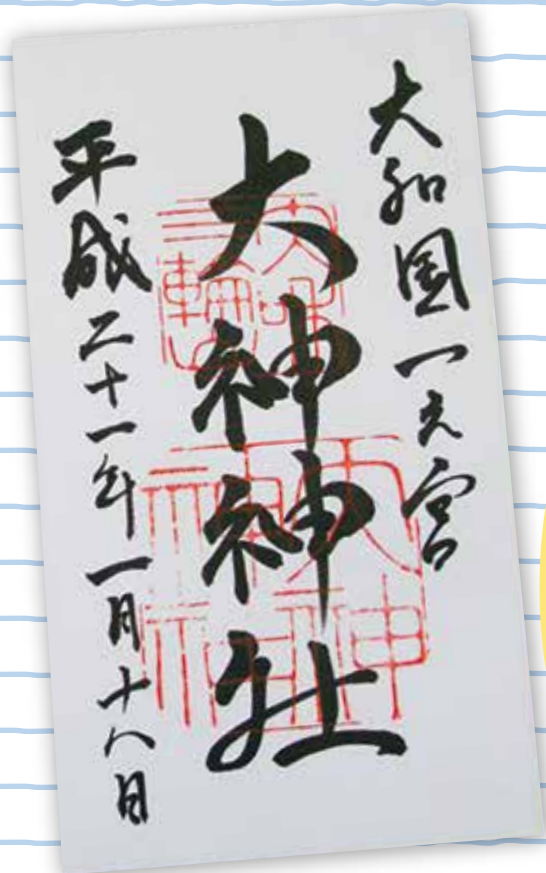 大和国一之宮
大神神社
平成二十一年一月十八日
大神
神社